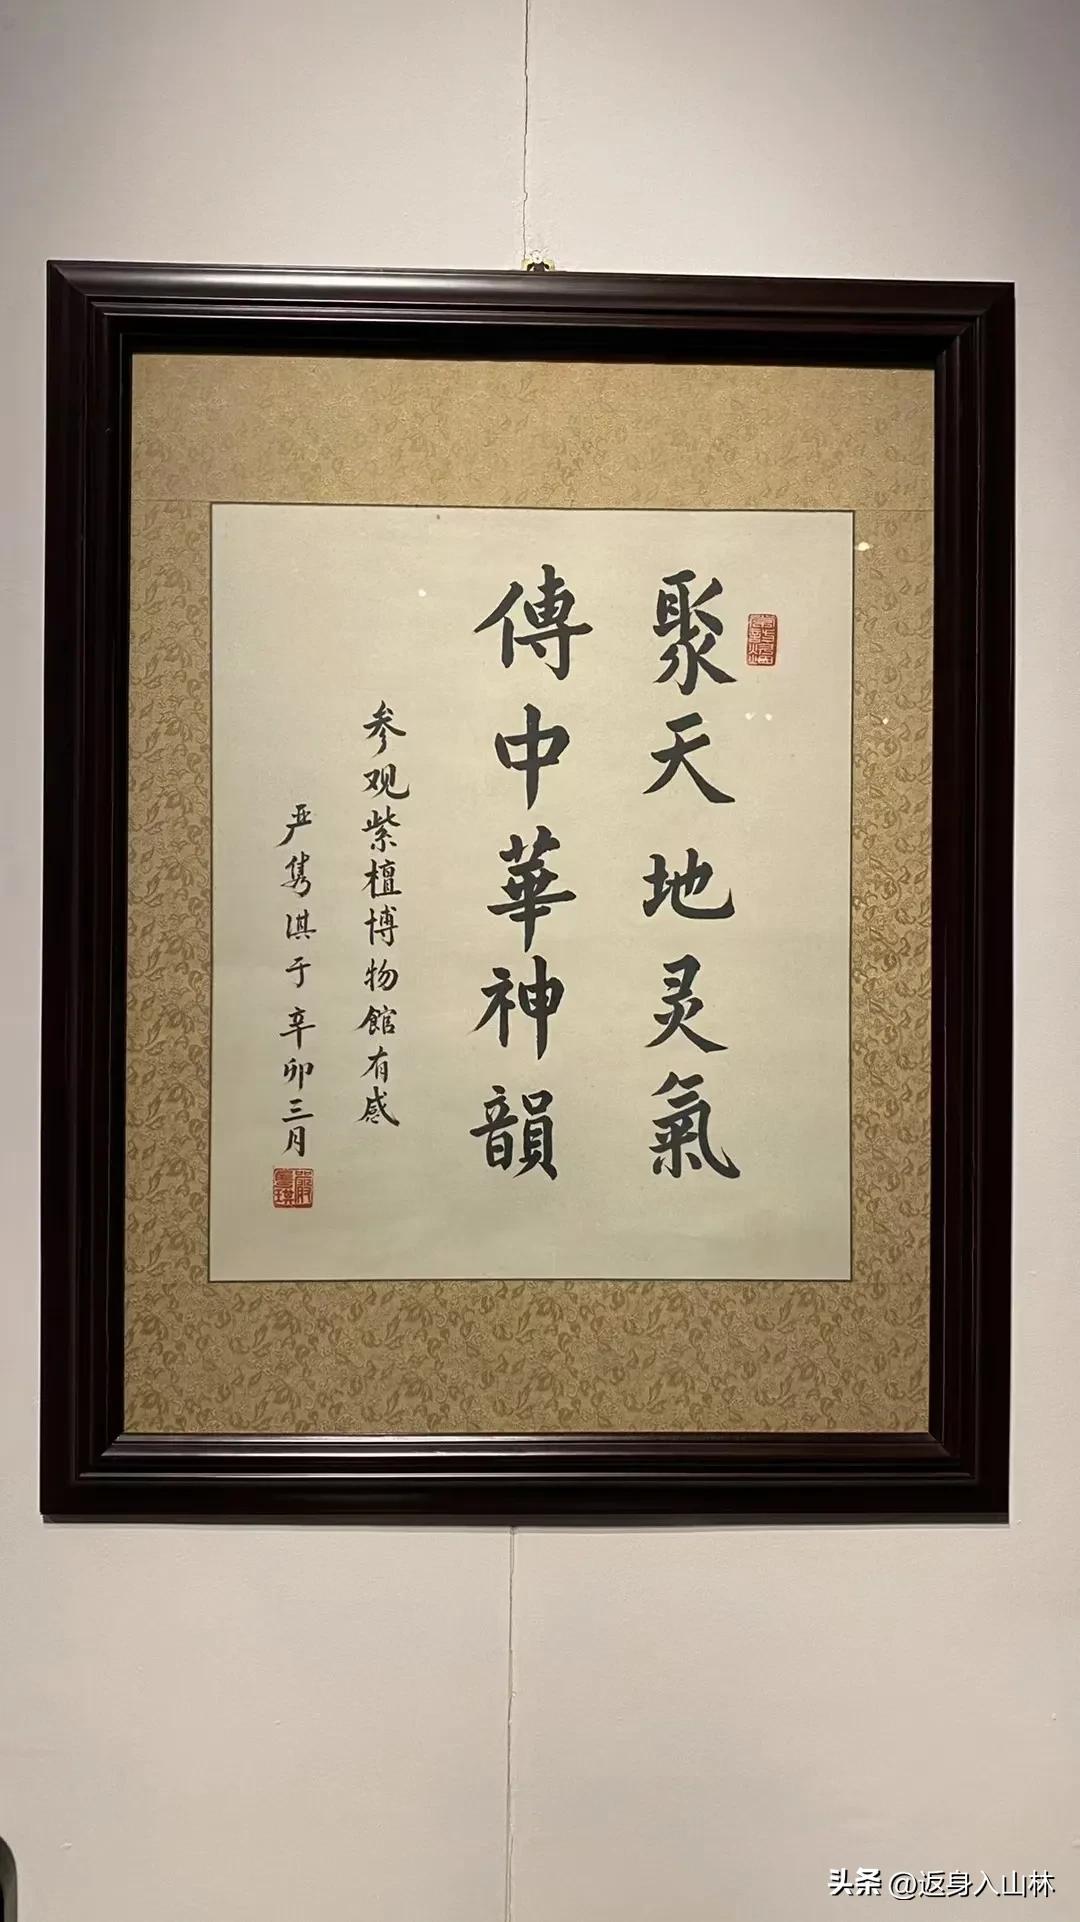 聚天地灵氣
傳中華神韻
参观紫檀博物館有感
严隽淇于辛卯三月
头条 @返身入山林